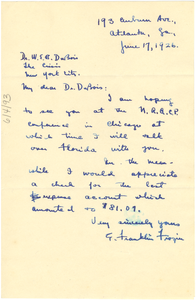 193 Auburn Ave.,
Atlanta, Ga.
June 17, 1926.
Dr. W. E. B. DuBois
The Crisis
New York City.
My dear Dr. DuBois:
I am hoping
to see you at the N.A.A.C.P
conference in Chicago at
which time I will talk
over Florida with you.
In the mean-
while I would appreciate
a check for the last
expense account which
amounted to $81.09.
Very sincerely yours
E. Franklin Frazier